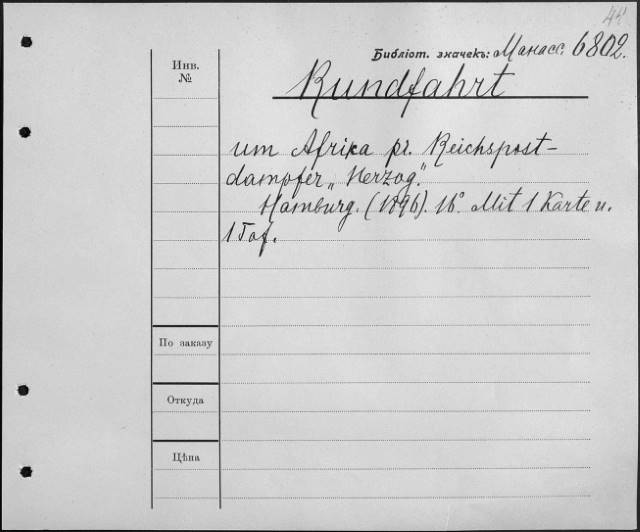 44
Библіот. значекъ: Манасс. 6802.
Инв.
№
Rundfahrt
um Afrika pr. Reichspost-
dampfer „Herzog."
Hamburg. (1896). 16° Mit 1 Karte u.
1 Taf.
По заказу
Откуда
Цѣна